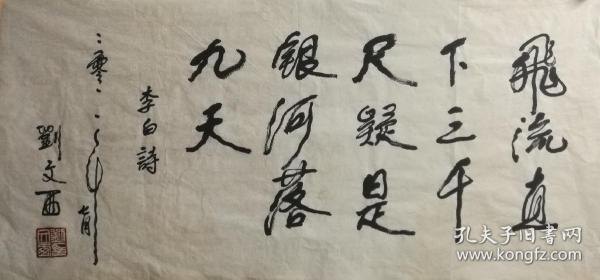 飛流直
下三千
尺疑是
銀河落
九天
李白詩
二零一一年七月
劉文西
孔夫子旧书网